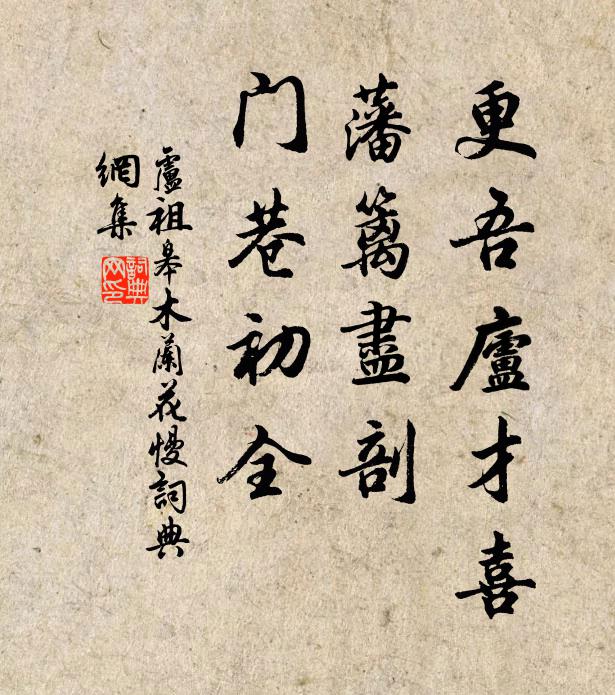 更吾廬才喜
藩籬盡剖
門巷初全
盧祖皋木蘭花慢詞典
網集
詞典
网印